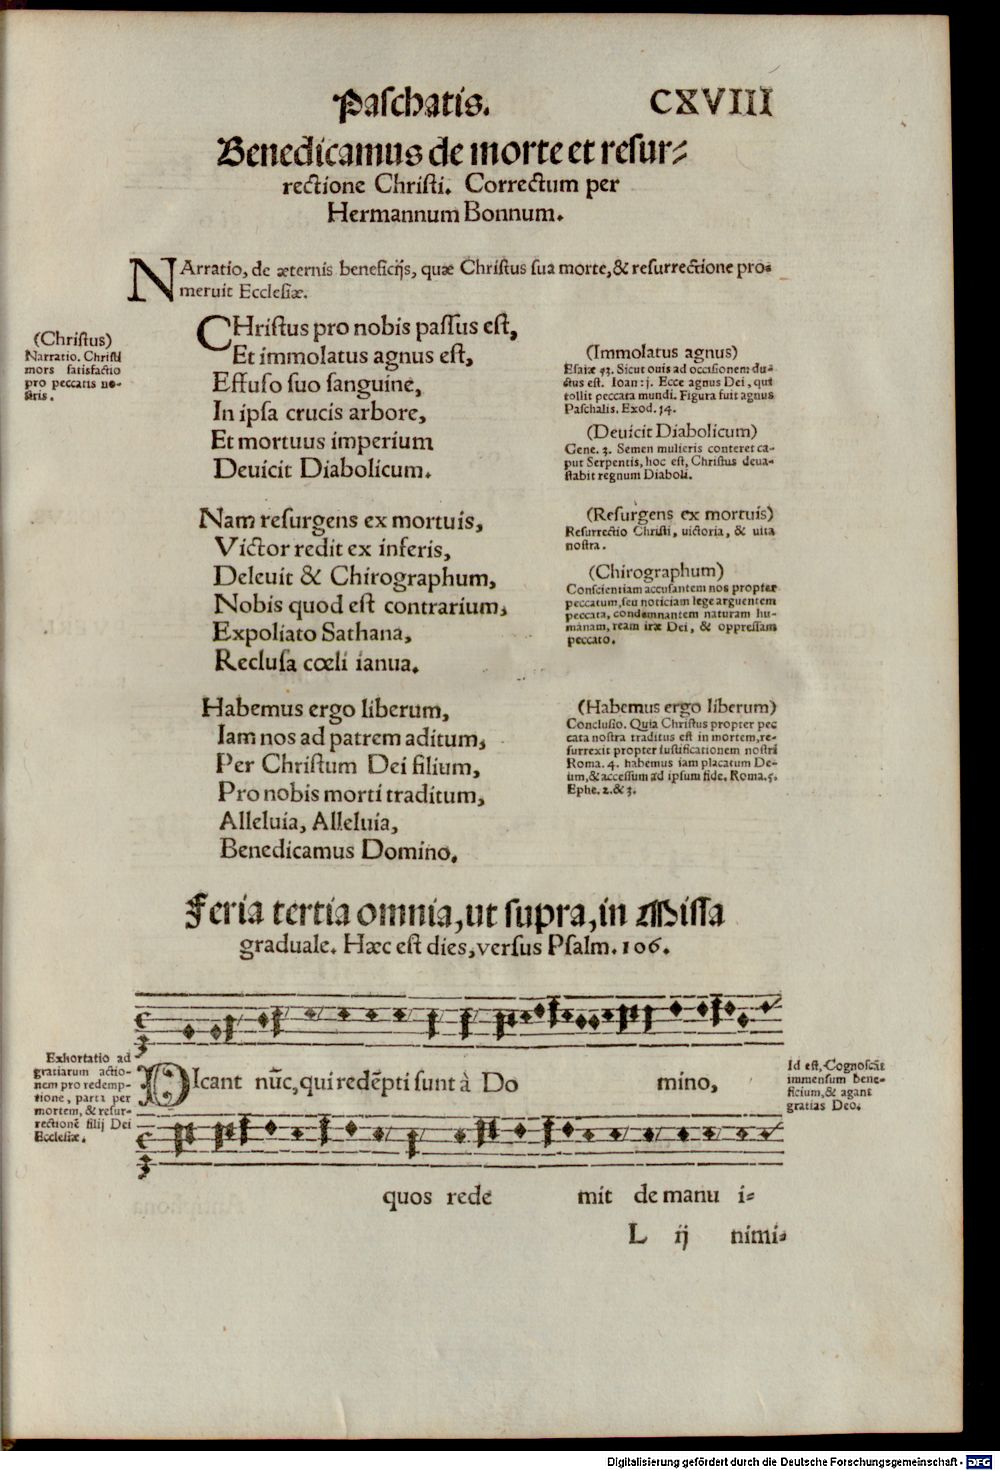 Paschatis. CXVIII
Benedicamus de morte et resur-
rectione Christi. Correctum per
Hermannum Bonnum.
NArratio, de æternis beneficijs, quæ Christus sua morte, & resurrectione pro-
meruit Ecclesiæ.
(Christus)
Narratio. Christi
mors satisfactio
pro peccatis no-
stris.
CHristus pro nobis passus est,
Et immolatus agnus est,
Effuso suo sanguine,
In ipsa crucis arbore,
Et mortuus imperium
Deuicit Diabolicum.
(Immolatus agnus)
Esaiæ 53. Sicut ouis ad occisionem du-
ctus est. Ioan: j. Ecce agnus Dei, qui
tollit peccata mundi. Figura fuit agnus
Paschalis. Exod. 14.
(Deuicit Diabolicum)
Gene. 3. Semen mulieris conteret ca-
put Serpentis, hoc est, Christus deua-
stabit regnum Diaboli.
Nam resurgens ex mortuis,
Victor redit ex inferis,
Deleuit & Chirographum,
Nobis quod est contrarium,
Expoliato Sathana,
Reclusa cœli ianua.
(Resurgens ex mortuis)
Resurrectio Christi, uictoria, & uita
nostra.
(Chirographum)
Conscientiam accusantem nos propter
peccatum, seu noticiam lege arguentem
peccata, condemnantem naturam hu-
manam, ream iræ Dei, & oppressam
peccato.
Habemus ergo liberum,
Iam nos ad patrem aditum,
Per Christum Dei filium,
Pro nobis morti traditum,
Alleluia, Alleluia,
Benedicamus Domino.
(Habemus ergo liberum)
Conclusio. Quia Christus propter pec
cata nostra traditus est in mortem, re-
surrexit propter iustificationem nostri
Roma. 4. habemus iam placatum De-
um, & accessum ad ipsum fide. Roma. 5.
Ephe. 2. & 3.
Feria tertia omnia, ut supra, in Missa
graduale. Hæc est dies, versus Psalm. 106.
Exhortatio ad
gratiarum actio-
nem pro redemp-
tione, parta per
mortem, & resur-
rectionē filij Dei
Ecclesiæ.
DIcant nūc, qui redēpti sunt à Do mino,
Id est, Cognoscāt
immensum bene-
ficium, & agant
gratias Deo.
quos rede mit de manu i-
L ij nimi-
Digitalisierung gefördert durch die Deutsche Forschungsgemeinschaft - DFG